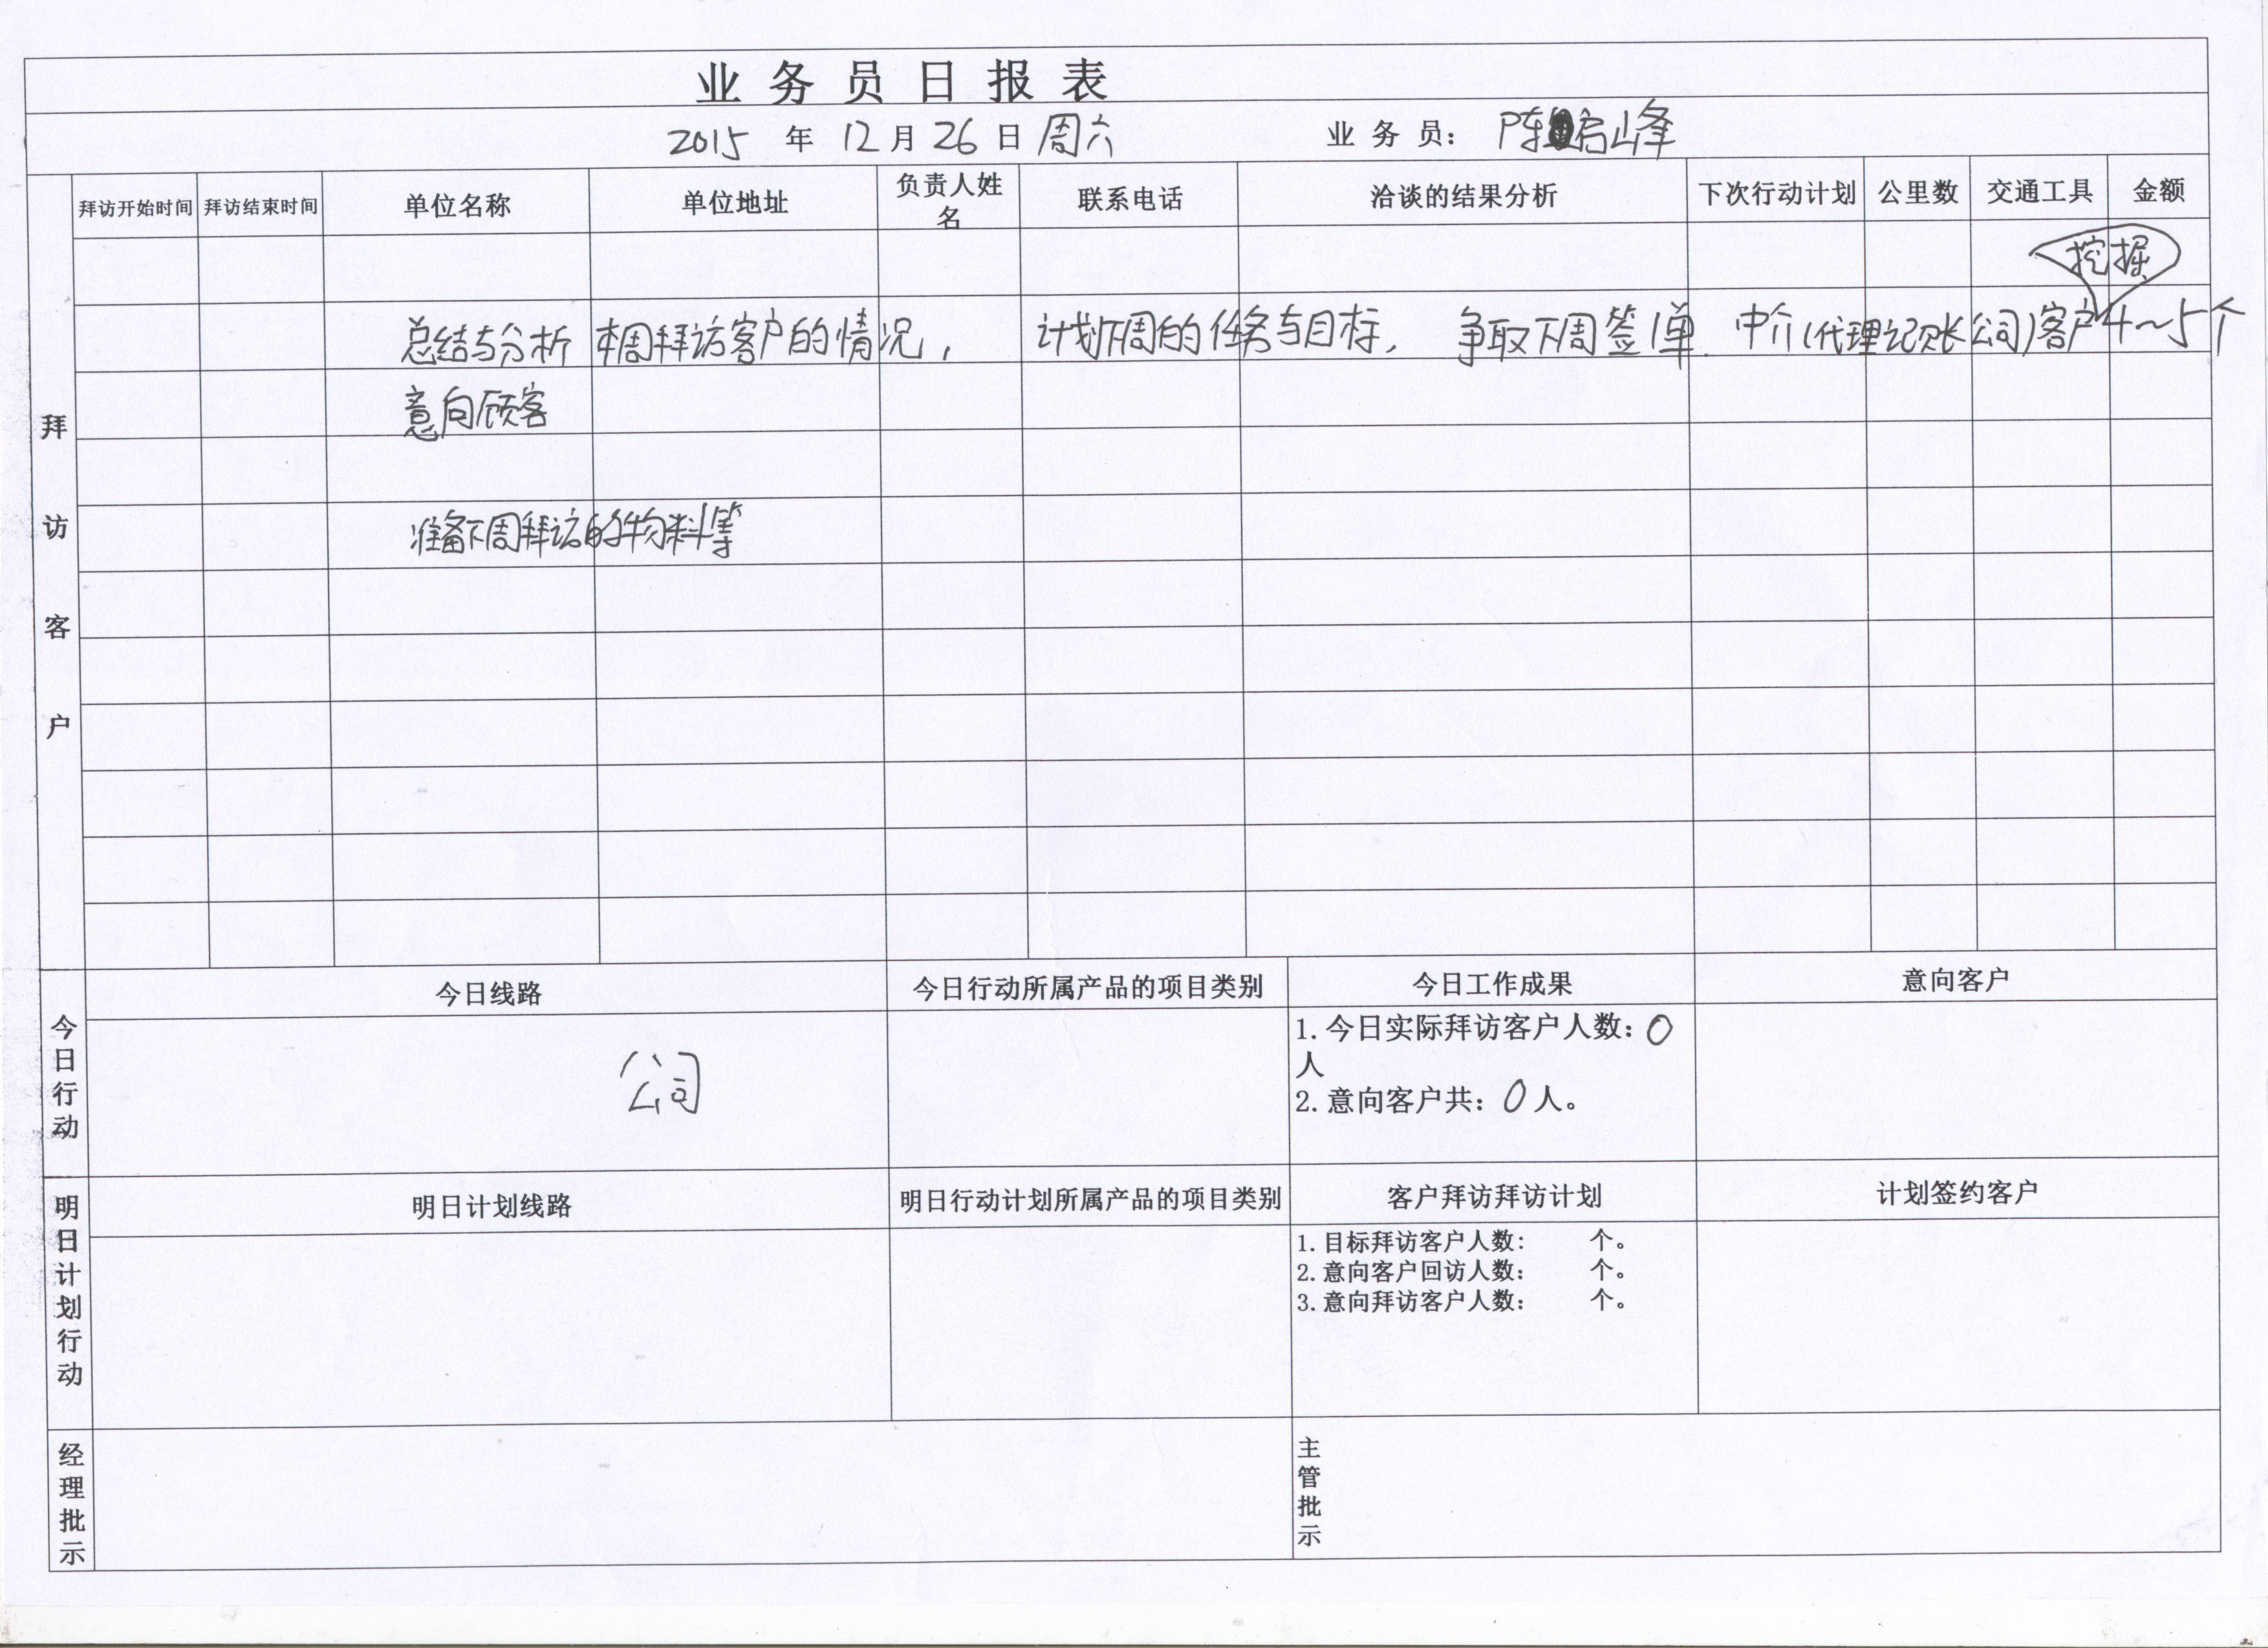 业务员日报表
2015 年 12 月 26 日 周六 业务员: 陈启峰
拜访客户
拜访开始时间 拜访结束时间 单位名称 单位地址 负责人姓名 联系电话 洽谈的结果分析 下次行动计划 公里数 交通工具 金额
挖掘
总结与分析 本周拜访客户的情况, 计划下周的任务与目标, 争取下周签1单. 中介(代理记账公司)客户4~5个
意向顾客
准备下周拜访的物料等
今日行动
今日线路 今日行动所属产品的项目类别 今日工作成果 意向客户
公司
1.今日实际拜访客户人数: 0
人
2.意向客户共: 0 人。
明日计划行动
明日计划线路 明日行动计划所属产品的项目类别 客户拜访拜访计划 计划签约客户
1.目标拜访客户人数: 个。
2.意向客户回访人数: 个。
3.意向拜访客户人数: 个。
经理批示
主管批示